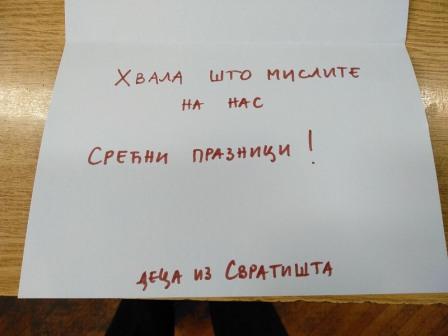 Хвала што мислите
на нас
Срећни празници!
деца из Свратишта